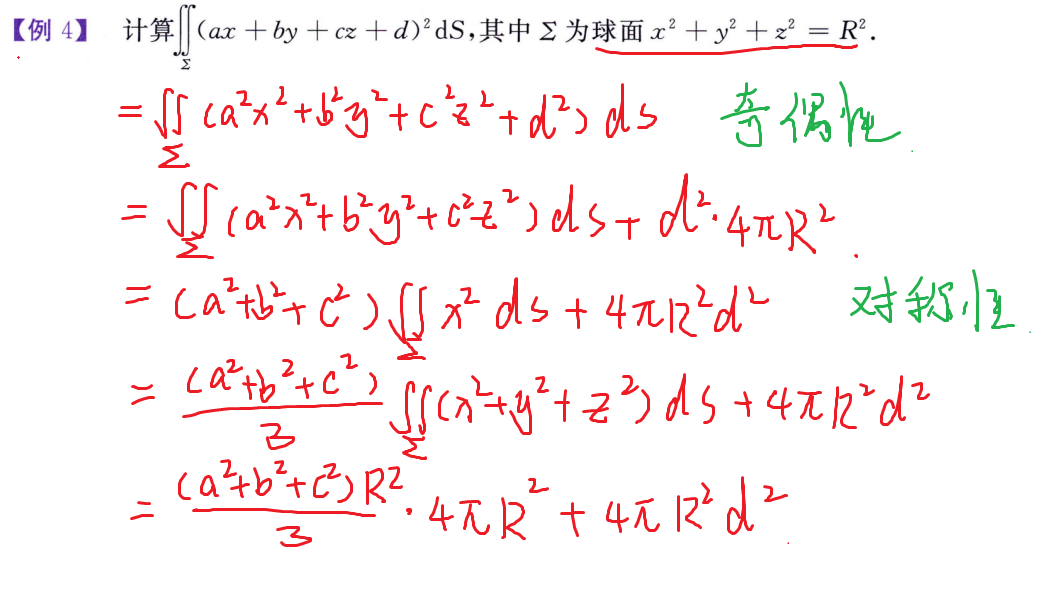 【例 4】 计算∬_Σ(ax + by + cz + d)² dS,其中 Σ 为球面 x² + y² + z² = R².
= ∬_Σ (a²x² + b²y² + c²z² + d²) ds 奇偶性
= ∬_Σ (a²x² + b²y² + c²z²) ds + d²·4πR²
= (a² + b² + c²) ∬_Σ x² ds + 4πR²d² 对称性
= (a² + b² + c²)/3 ∬_Σ (x² + y² + z²) ds + 4πR²d²
= (a² + b² + c²)R²/3 · 4πR² + 4πR²d²